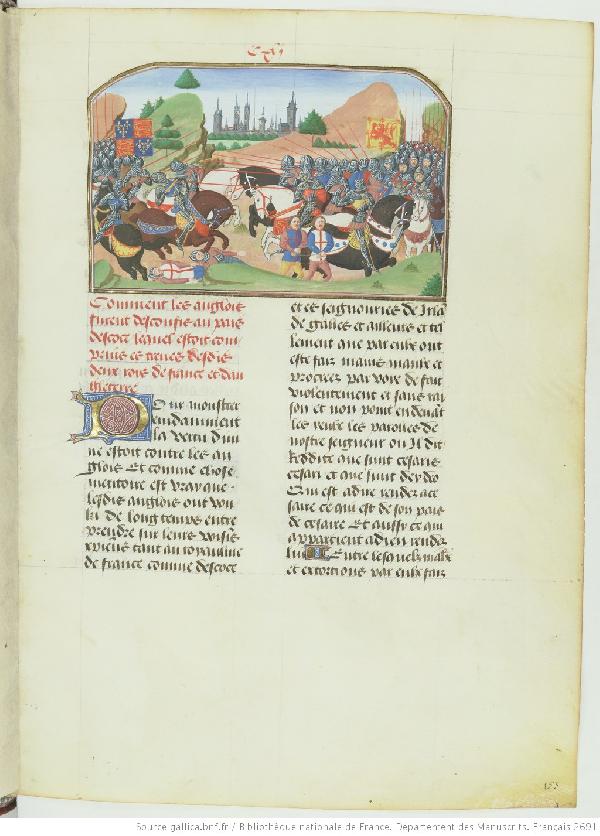 Cxvi
Comment les anglois
furent desconfis au pais
descoce lequel estoit com
prins es treves desdis
deux rois de france et dan
gleterre
Pour monstrer
evidamment
la vertu divi
ne estoit contre les an
glois Et comme chose
memtoire est vray que
lesdis anglois ont vou
lu de long temps entre
prendre sur leurs voisins
xpiens tant au royaulme
de france comme descoce
et es seignouries de Irla
de galles et ailleurs et tel
lement que par eulx ont
este fais maints maulx et
procurez par voie de fait
violentement et sans rai
son et non point endevāt
les yeulx les paroles de
nostre seigneur ou Il dit
Reddite que sunt cesaris
cesari et que sunt dei deo
Qui est adire render a ce
saire ce qui est de son pais
de cesaire Et aussy ce qui
appartient a dieu render
lui Entre lesquelz maulx
et extortions par eulx fais
153
Source gallica.bnf.fr / Bibliothèque nationale de France. Département des Manuscrits. Français 2691